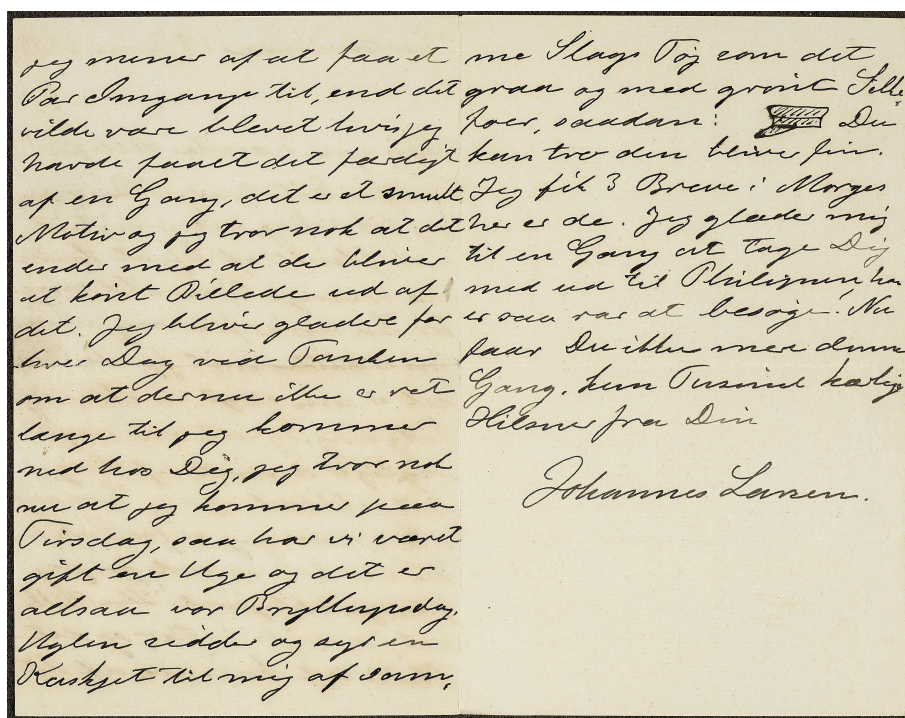 jeg mener af at faa et
Par Omgange til, end det
vilde være blevet hvis jeg
havde faaet det færdigt
af en Gang, det er et smukt
Motiv og jeg tror nok at det
ender med at de bliver
et kønt Billede ud af
det. Jeg bliver gladere for
hver Dag ved Tanken
om at der nu ikke er ret
længe til jeg kommer
ned hos Dig, jeg tror nok
nu at jeg kommer paa
Tirsdag, saa har vi været
gift en Uge og det er
altsaa vor Bryllupsdag.
Uglen sidder og syr en
Kaskjet til mig af sam-
me Slags Tøj som det
graa og med grønt Silke-
foer, saadan: Du
kan tro den bliver fin.
Jeg fik 3 Breve i Morges
her er de. Jeg glæder mig
til en Gang at tage Dig
med ud til Philipsen, han
er saa rar at besøge! Nu
faar Du ikke mere denne
Gang, kun Tusind kærlige
Hilsner fra Din
Johannes Larsen.